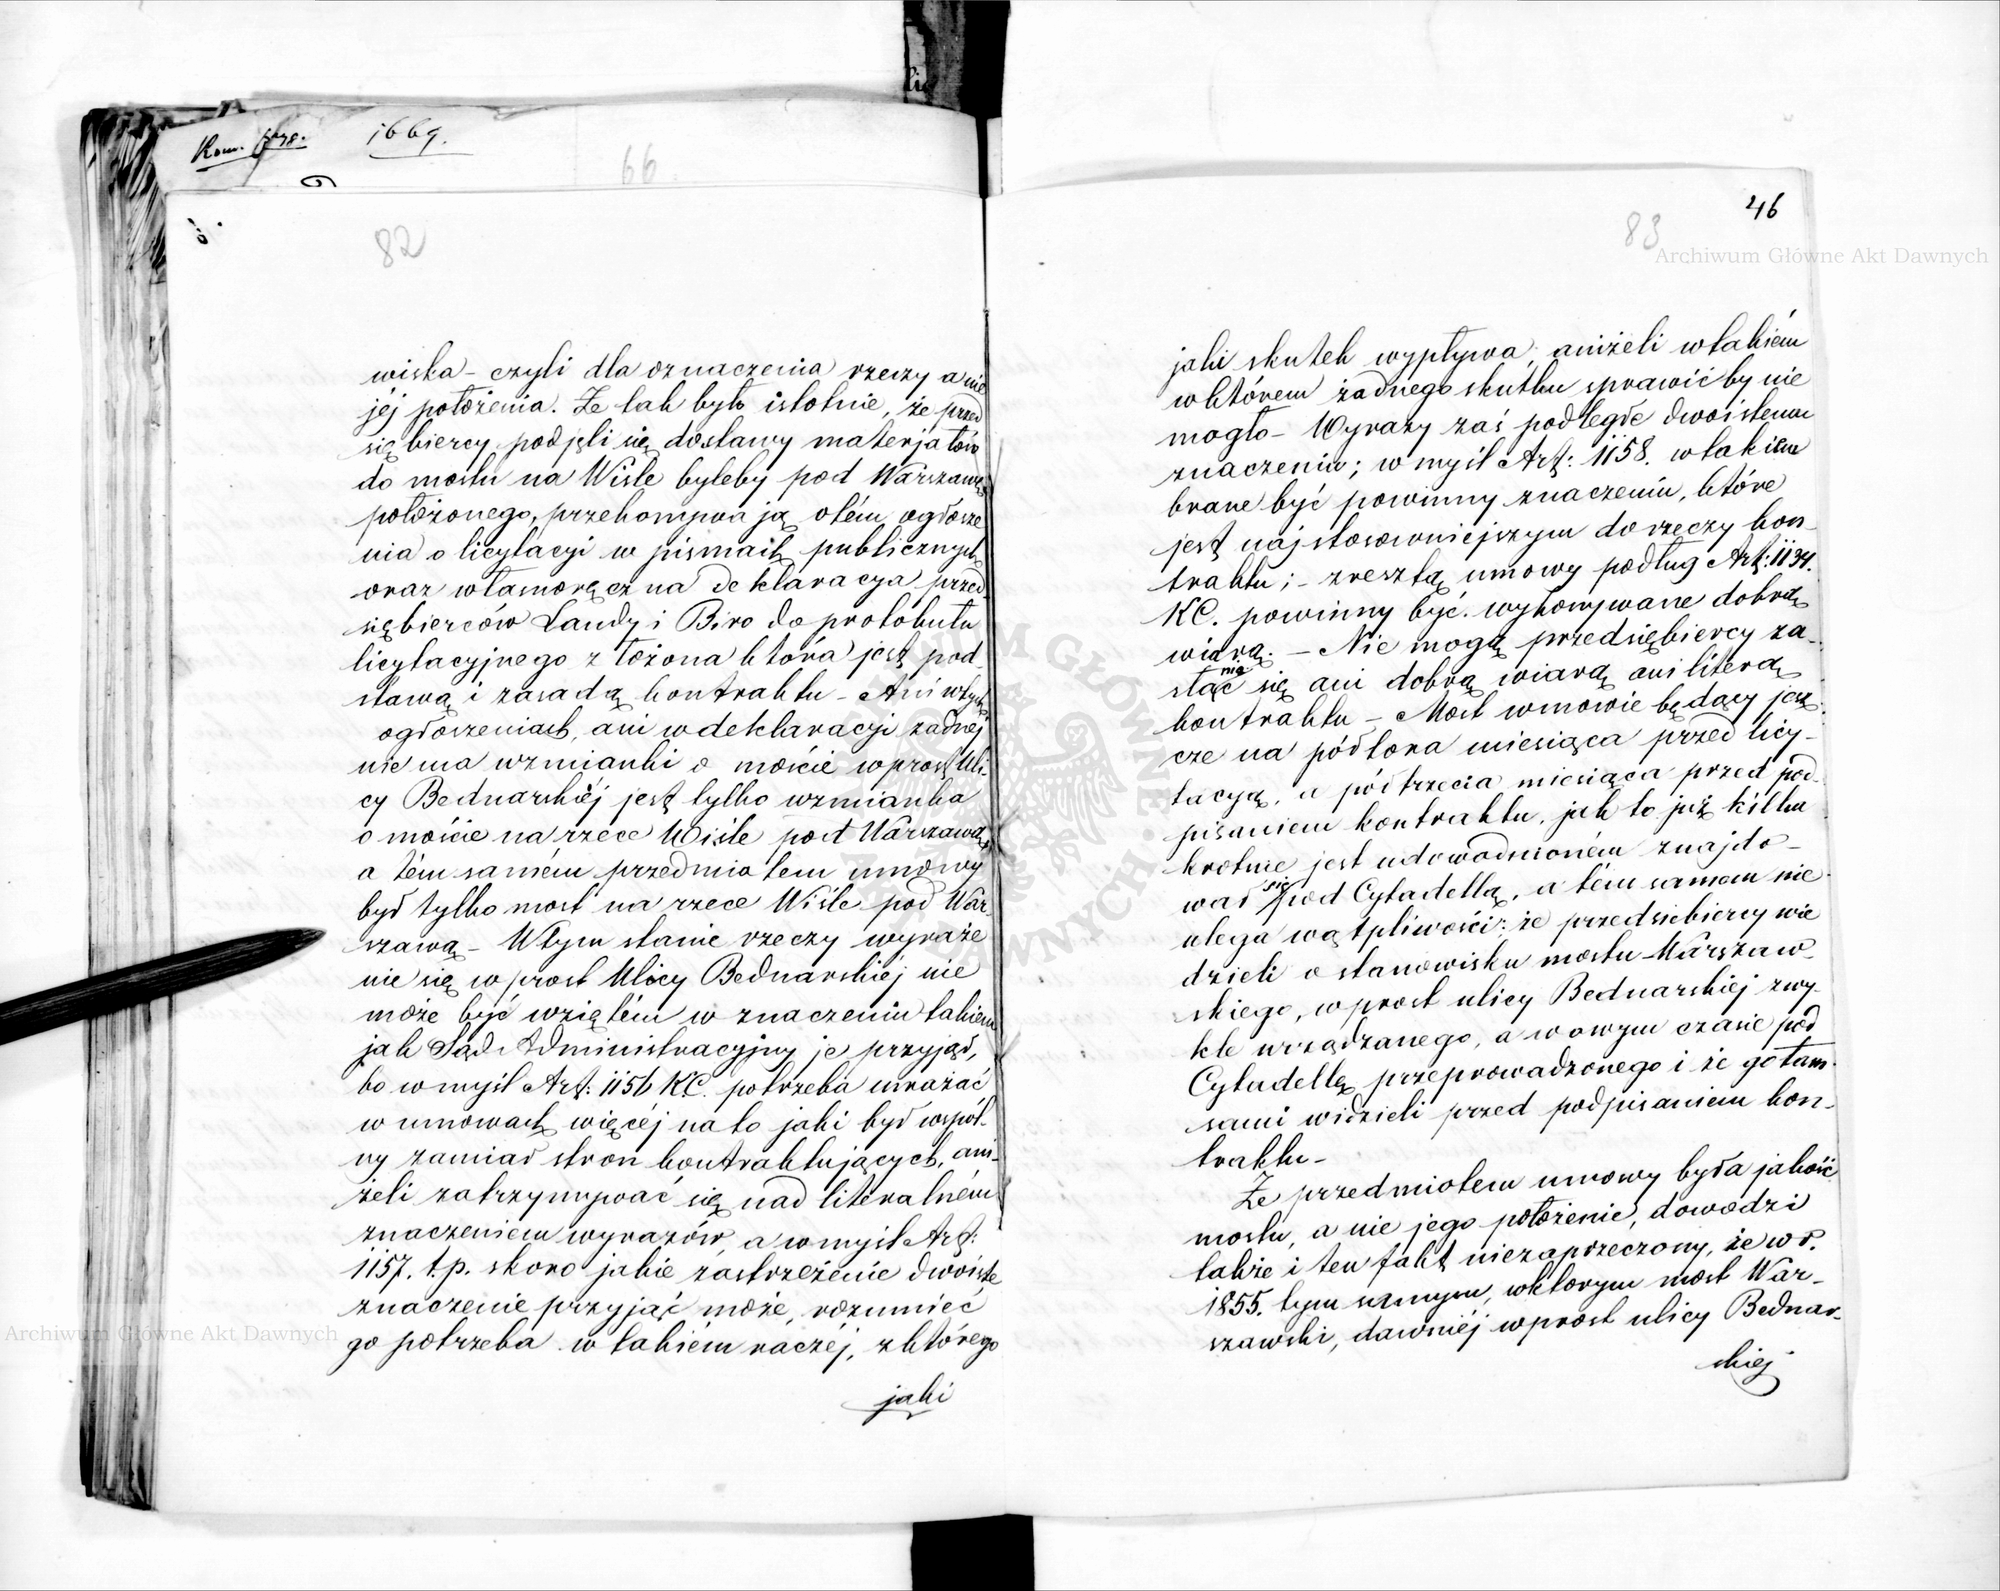 Kom. 1669.
66
82
wiska – czyli dla oznaczenia rzeczy a nie
jej położenia. Że tak było istotnie, że przed
siębiercy podjęli się dostawy materjałów
do mostu na Wiśle byleby pod Warszawą
położonego, przekonywają o tém ogłosze
nia o licytacyi w pismach publicznych
oraz własnoręczna deklaracya przed
siębierców Landy i Biro do protokułu
licytacyjnego złożona która jest pod
stawą i zasadą kontraktu – Ani w tych
ogłoszeniach, ani w deklaracyi żadnej
nie ma wzmianki o moście wprost Uli
cy Bednarskiéj jest tylko wzmianka
o moście na rzece Wiśle pod Warszawą
a tém samém przedmiotem umowy
był tylko most na rzece Wiśle pod War
szawą – W tym stanie rzeczy wyraże
nie się wprost Ulicy Bednarskiéj nie
może być wziętém w znaczeniu takiem
jak Sąd Administracyjny je przyjął,
bo w myśl Art: 1156 KC. potrzeba uważać
w umowach więcéj na to jaki był wspól-
ny zamiar stron kontraktujących, ani-
żeli zatrzymywać się nad literalném
znaczeniem wyrazów, a w myśl Art:
1157. t.p. skoro jakie zastrzeżenie dwoiste
znaczenie przyjąć może, rozumieć
go potrzeba w takiém raczej, z którego
jaki
46
83
jaki skutek wypływa, aniżeli w takiém
w którem żadnego skutku sprawić by nie
mogło – Wyrazy zaś podległe dwoistemu
znaczeniu; w myśl Art: 1158. w takiem
brane być powinny znaczeniu, które
jest najstosowniejszym do rzeczy kon-
traktu; – zresztą umowy podług Art: 1134.
KC. powinny być wykonywane dobrą
wiarą. – Nie mogą przedsiębiercy za-
nia
stać się ani dobrą wiarą ani literą
kontraktu – Most w mowie będący jesz
cze na półtora miesiąca przed licy-
tacyą, a półtrzecia miesiąca przed pod
pisaniem kontraktu, jak to już kilka
krotnie jest udowodnioném znajdo-
wał się pod Cytadellą, a tém samem nie
ulega wątpliwości: że przedsiebiercy wie
dzieli o stanowisku mostu Warszaw-
skiego, wprost ulicy Bednarskiéj zwy-
kle urządzanego, a w owym czasie pod
Cytadellę przeprowadzonego i że go tam
sami widzieli przed podpisaniem kon-
traktu –
Że przedmiotem umowy była jakość
mostu, a nie jego położenie, dowodzi
także i ten fakt niezaprzeczony, że w r.
1855. tym samym, w którym most War-
szawski, dawniéj wprost ulicy Bednar-
skiej
Archiwum Główne Akt Dawnych
Archiwum Główne Akt Dawnych